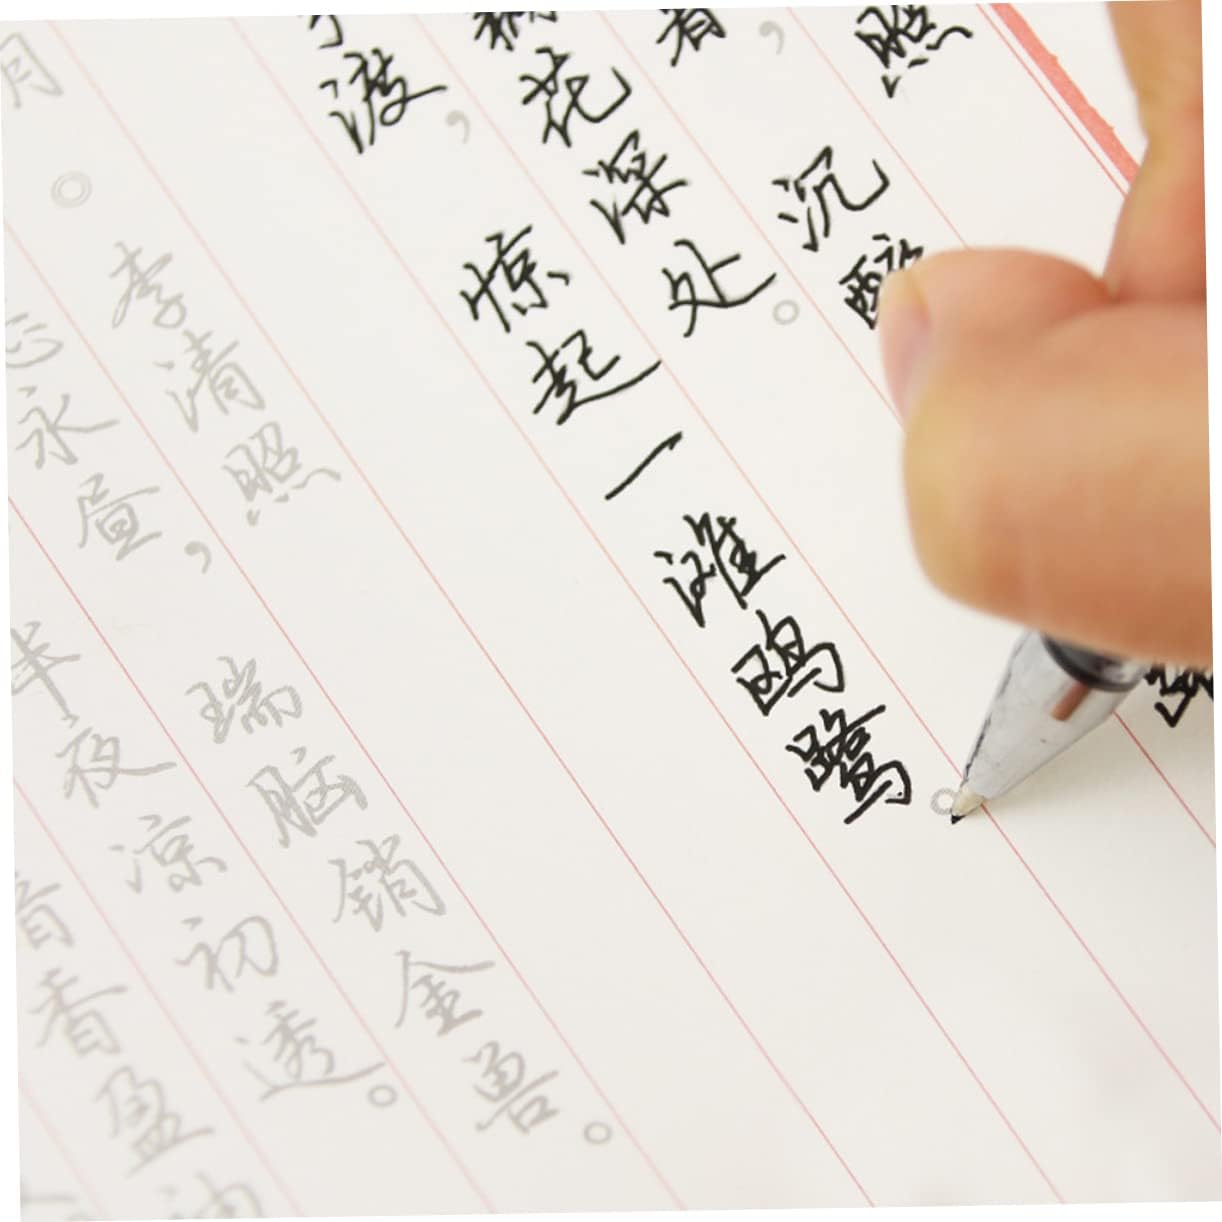 照
，沉醉
藕花深处。
渡，惊起一滩鸥鹭。
李清照
月。
永昼，瑞脑销金兽。
半夜凉初透。
香盈袖